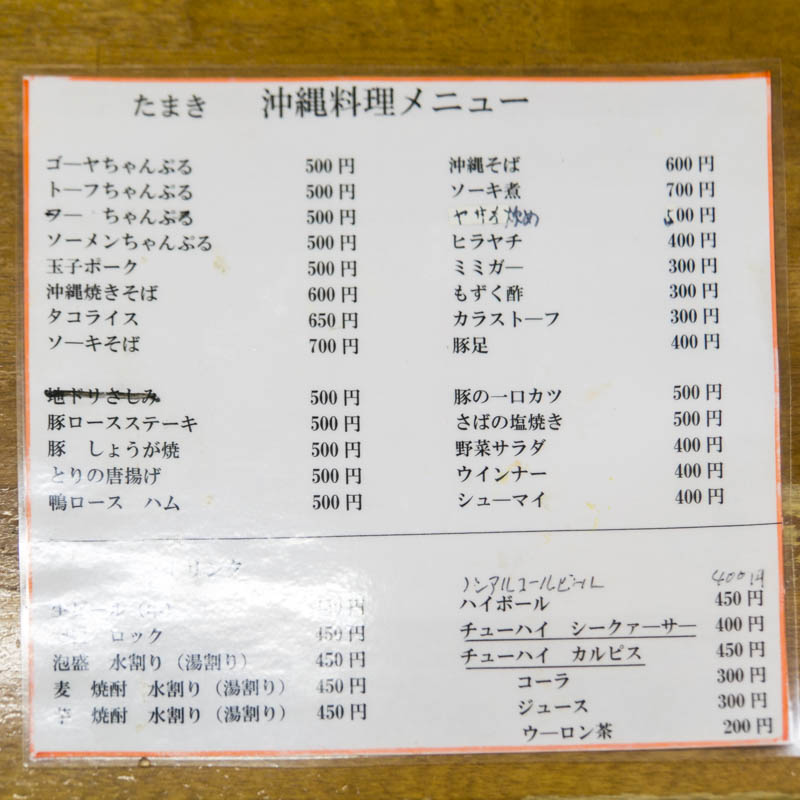 たまき 沖縄料理メニュー
ゴーヤちゃんぷる 500円
トーフちゃんぷる 500円
フーちゃんぷる 500円
ソーメンちゃんぷる 500円
玉子ポーク 500円
沖縄焼きそば 600円
タコライス 650円
ソーキそば 700円
地ドリさしみ 500円
豚ロースステーキ 500円
豚 しょうが焼 500円
とりの唐揚げ 500円
鴨ロース ハム 500円
沖縄そば 600円
ソーキ煮 700円
ヤサイ炒め 500円
ヒラヤチ 400円
ミミガー 300円
もずく酢 300円
カラストーフ 300円
豚足 400円
豚の一口カツ 500円
さばの塩焼き 500円
野菜サラダ 400円
ウインナー 400円
シューマイ 400円
ドリンク
生ビール（中）
ロック 450円
泡盛 水割り（湯割り） 450円
麦 焼酎 水割り（湯割り） 450円
芋 焼酎 水割り（湯割り） 450円
ノンアルコールビール 400円
ハイボール 450円
チューハイ シークァーサー 400円
チューハイ カルピス 450円
コーラ 300円
ジュース 300円
ウーロン茶 200円